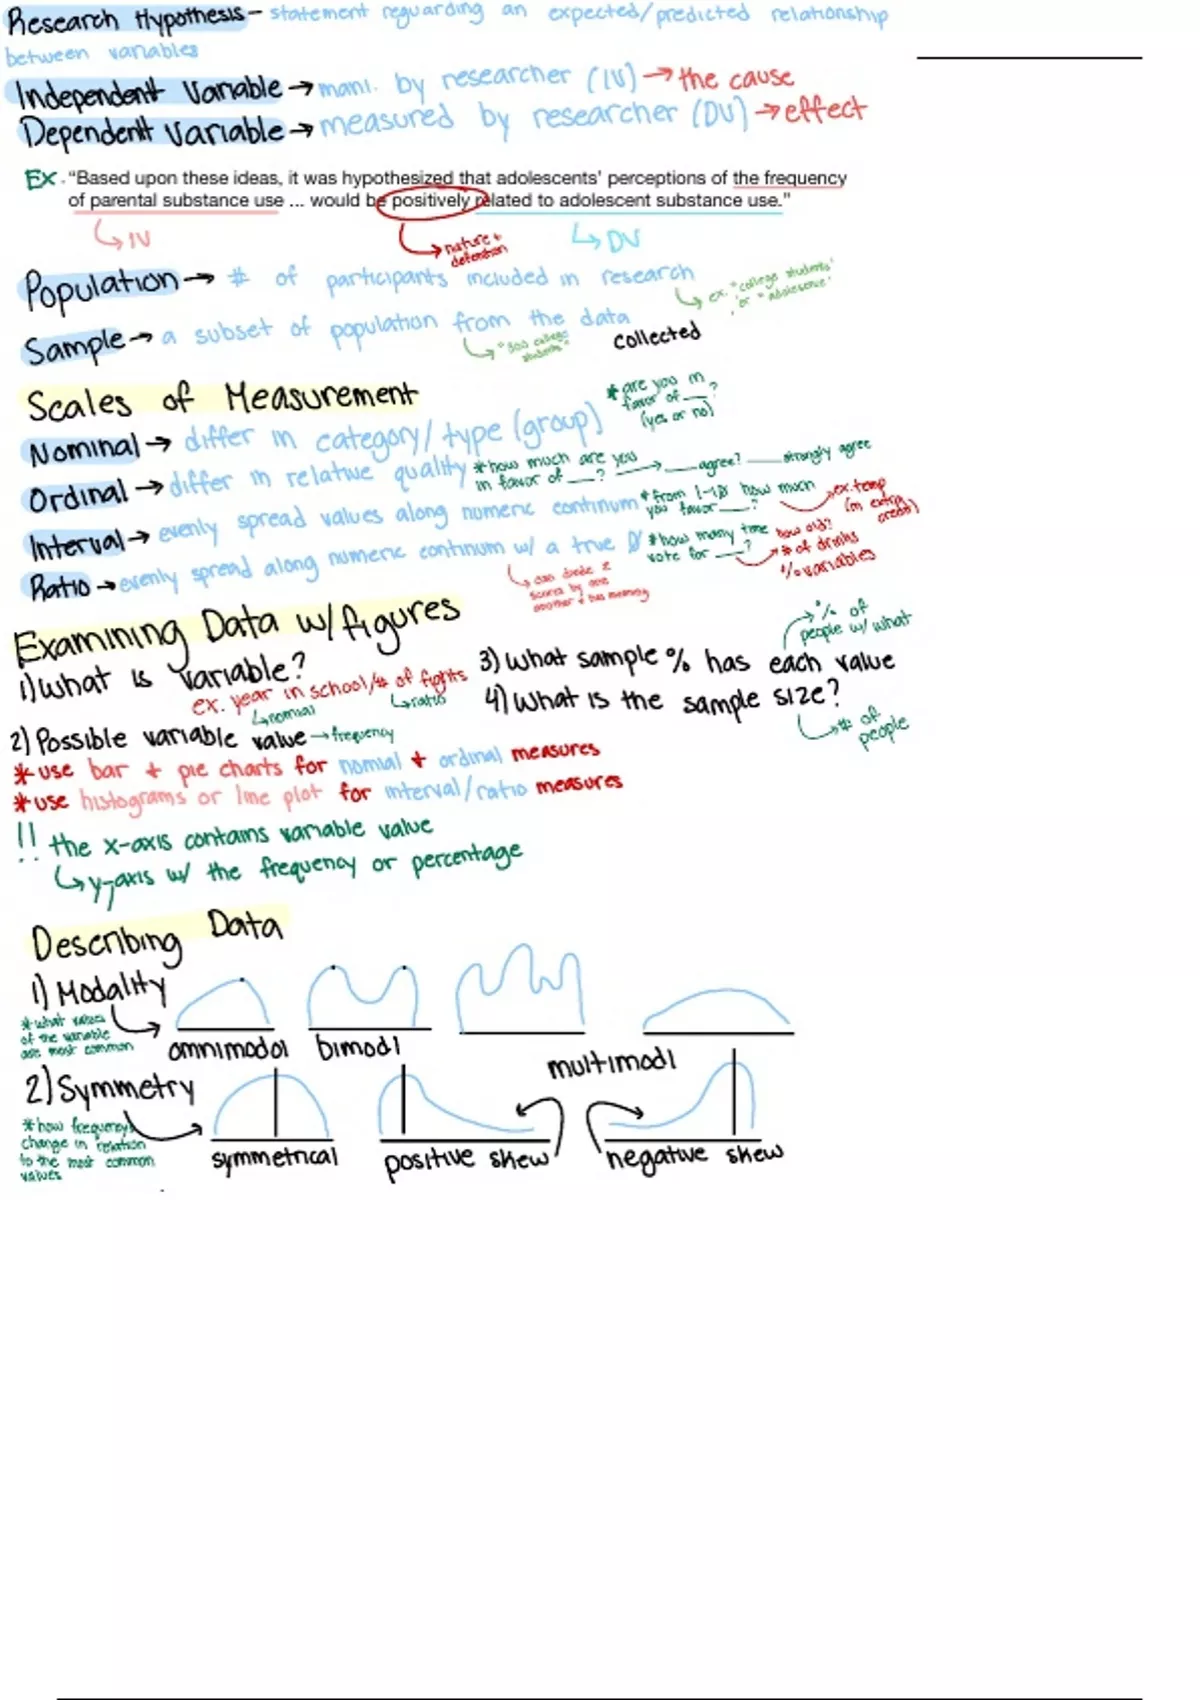 Research Hypothesis - statement reguarding an expected/predicted relationship
between variables
Independent Variable → mani. by researcher (IV) → the cause
Dependent Variable → measured by researcher (DV) → effect
EX. "Based upon these ideas, it was hypothesized that adolescents' perceptions of the frequency
of parental substance use ... would be positively related to adolescent substance use."
IV
nature +
DV
Population → # of participants included in research
ex. "college students"
or "adolescence"
Sample → a subset of population from the data
collected
"300 college
students"
Scales of Measurement
* are you in
favor of ___?
(yes or no)
Nominal → differ in category/type (group)
Ordinal → differ in relative quality
* how much are you
in favor of ___? → ___agree? ___strongly agree
Interval → evenly spread values along numeric continum
* from 1-10 how much
you favor ___?
ex. temp
(in extra
credit)
Ratio → evenly spread along numeric continum w/ a true 0
* how many time
vote for ___?
how old?
# of drinks
% variables
can divide 2
scores by one
another + has meaning
Examining Data w/figures
1) What is variable?
ex. year in school/# of fights
nomial
ratio
2) Possible variable value → frequency
3) What sample % has each value
% of
people w/ what
4) What is the sample size?
# of
people
* use bar + pie charts for nomial + ordinal measures
* use histograms or line plot for interval/ratio measures
!! the x-axis contains variable value
y-axis w/ the frequency or percentage
Describing Data
1) Modality
* what values
of the variable
are most common
omnimodal
bimodl
multimodl
2) Symmetry
* how frequency
change in relation
to the most common
values
symmetrical
positive skew
negative skew